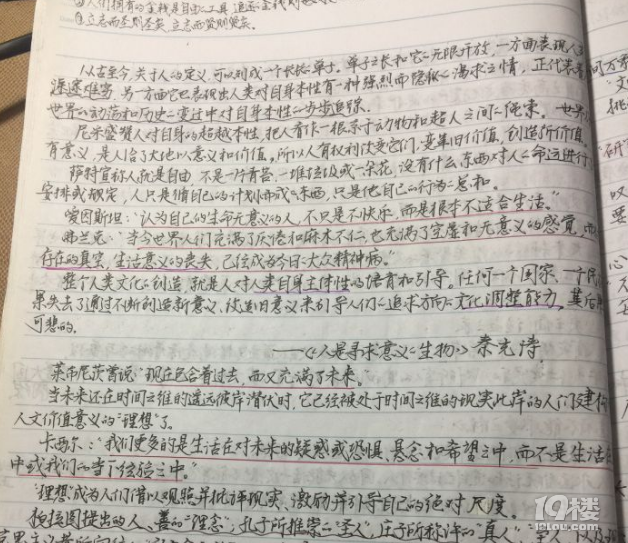 ①人们拥有的金钱是自由的工具,追逐金钱则
②立志而圣则圣矣,立志而贤则贤矣。
从古至今,关于人的定义,可以列成一个长长的单子。单子之长和它的无限开放,一方面表现人
深邃难穷,另一方面它也表现出人类对自身本性有一种强烈而隐秘的渴求之情,正代表着
世界的动荡和历史的变迁中对自身本性的步步追踪。
尼采盛赞人对自身的超越本性,把人看作一根系于动物和超人之间的绳索。世界
有意义,是人给予大地以意义和价值,所以人有权利改变它们,变革旧价值,创造新价值。
萨特宣称人就是自由,不是一片青苔、一堆垃圾或一朵花,没有什么东西对人的命运进行
安排或规定,人只是循自己的计划而成的东西,只是他自己的行为的总和。
爱因斯坦:“认为自己的生命无意义的人,不只是不快乐,而是根本不适合生活。”
弗兰克:“当今世界人们充满了厌倦和麻木不仁,也充满了空虚和无意义的感觉,
存在的真实,生活意义的丧失,已经成为今日的大众精神病。”
整个人类文化的创造,就是人对人类自身主体性的培育和引导。任何一个国家、一个民
果失去了通过不断创造新意义、改造旧意义来引导人们的追求方向的文化调整能力,其后
可悲的。
——《人是寻求意义的生物》秦光涛
莱布尼茨曾说“现在包含着过去,而又充满了未来。”
当未来还在时间之维的遥远彼岸潜伏时,它已经被处于时间之维的现实此岸的人们建构
人文价值意义的“理想”了。
卡西尔:“我们更多的是生活在对未来的疑惑或恐惧、悬念和希望之中,而不是生活在
中或我们的当下经验之中。”
“理想”成为人们借以观照并批评现实、激励并引导自己的绝对尺度。
柏拉图提出的人、善的“理念”,孔子所推崇的“圣人”,庄子所称许的“真人”、“至人”以及
19楼
19lou.com